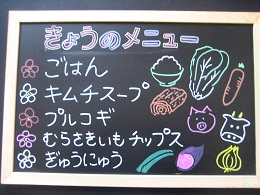 きょうのメニュー
ごはん
キムチスープ
プルコギ
むらさきいもチップス
ぎゅうにゅう